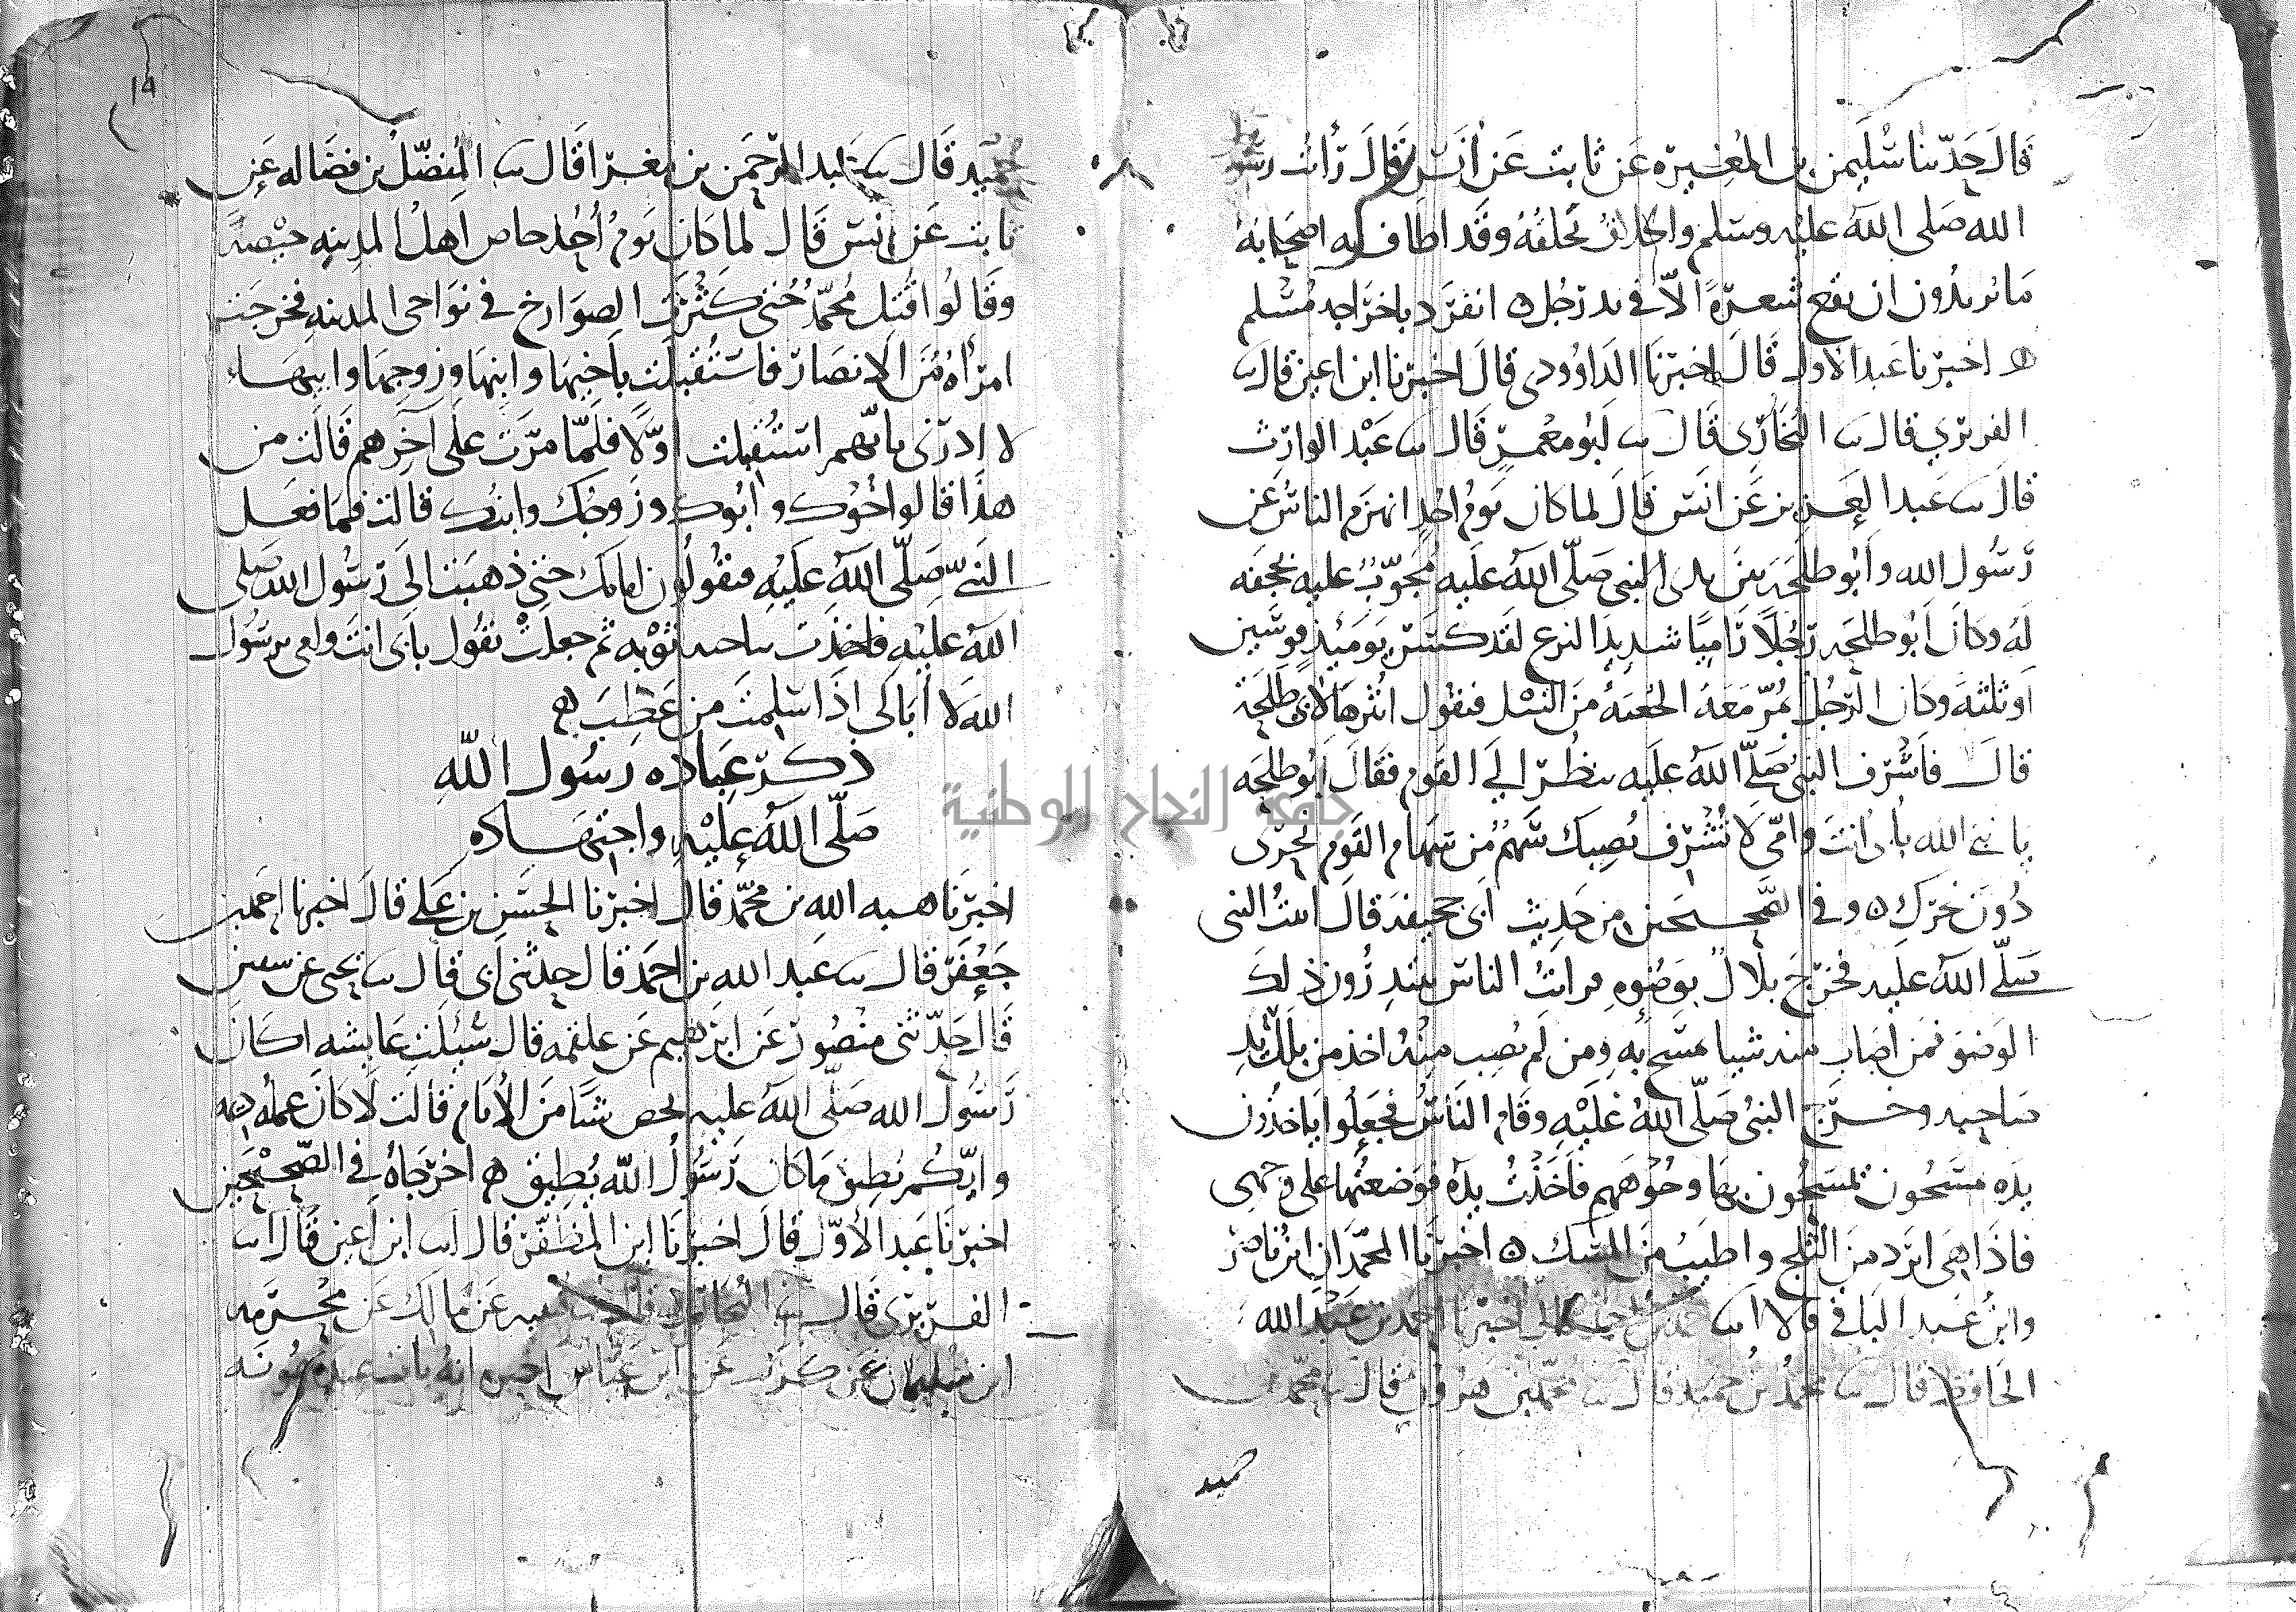 قال حدثنا سليمن بن المغيره عن ثابت عن أنس قال رأيت رسول
الله صلى الله عليه وسلم والحلاق يحلقه وقد اطاف به اصحابه
ما يريدون ان يقع شعرة الا في يد رجل ه انفرد باخراجه مسلم
ه اخبرنا عبد الاول قال اخبرنا الداوودى قال اخبرنا ابن اعين قال
الفربري قال سا البخارى قال سا ابو معمر قال سا عبد الوارث
قال سا عبد العزيز عن انس قال لما كان يوم احد انهزم الناس عن
رسول الله وأبو طلحة بين يدى النبى صلى الله عليه مجوب عليه بحجفه
له وكان أبو طلحه رجلا راميا شديد النزع لقد كسر يومئذ قوسين
او ثلثه وكان الرجل يمر معه الجعبه من النبل فيقول انثرها لابى طلحة
قال فأشرف النبى صلى الله عليه ينظر الي القوم فقال أبو طلحه
يا نبى الله بأبى انت وامى لا تشرف يصبك سهم من سهام القوم نحرى
دون نحرك ه وفي الصحيحين من حديث ابى جحيفة قال اتيت النبى
صلى الله عليه فخرج بلال بوضوه فرايت الناس يبتدرون ذلك
الوضو فمن اصاب منه شيا تمسح به ومن لم يصب منه اخذ من بلل يد
صاحبه وخرج النبى صلى الله عليه وقام الناس فجعلوا ياخذون
يده يمسحون بها وجوههم فأخذت يده فوضعتها على وجهى
فاذا هى ابرد من الثلج واطيب من المسك ه اخبرنا المحمدان ابن ناصر
وابن عبد الباقي قالا اسا اخبرنا احمد بن عبد الله
الحافظ قال سا محمد بن حميد قال سا محمد بن هرون قال سا محمد بن
حميد
14
حميد قال سا عبد الرحمن بن مغرا قال سا المفضل بن فضاله عن
ثابت عن أنس قال لما كان يوم أحد حاص اهل المدينه حيصة
وقالوا قتل محمد حتى كثرت الصوارخ في نواحى المدينه فخرجت
امرأه من الانصار فاستقبلت بأخيها وابنها وزوجها وابيها
لا ادرى بايهم استقبلت اولا فلما مرت على آخرهم قالت من
هذا قالوا اخوك وأبوك وزوجك وابنك قالت فما فعل
النبى صلى الله عليه فيقولون امامك حتى ذهبت الى رسول الله صلى
الله عليه فاخذت بناحيه ثوبه ثم جعلت تقول بأبى انت وامى يرسول
الله لا أبالى اذا سلمت من عطب ه
ذكر عباده رسول الله
صلى الله عليه واجتهاده
اخبرنا هبه الله بن محمد قال اخبرنا الحسن بن على قال اخبرنا احمد بن
جعفر قال سا عبد الله بن احمد قال حدثنى أبى قال سا يحيى عن سفين
قال حدثنى منصور عن ابرهيم عن علقمه قال سئلت عايشه اكان
رسول الله صلى الله عليه يخص شيا من الأيام قالت لا كان عمله ديمه
وايكم يطيق ما كان رسول الله يطيق ه اخرجاه في الصحيحين
اخبرنا عبد الأول قال اخبرنا ابن المظفر قال اسا ابن اعين قال اسا
الفربرى قال سا البخارى عن مالك عن مخرمه
ابن سليمان عن كريب عن ابن عباس اخبره انه بات عند ميمونه
جامعة النجاح الوطنية